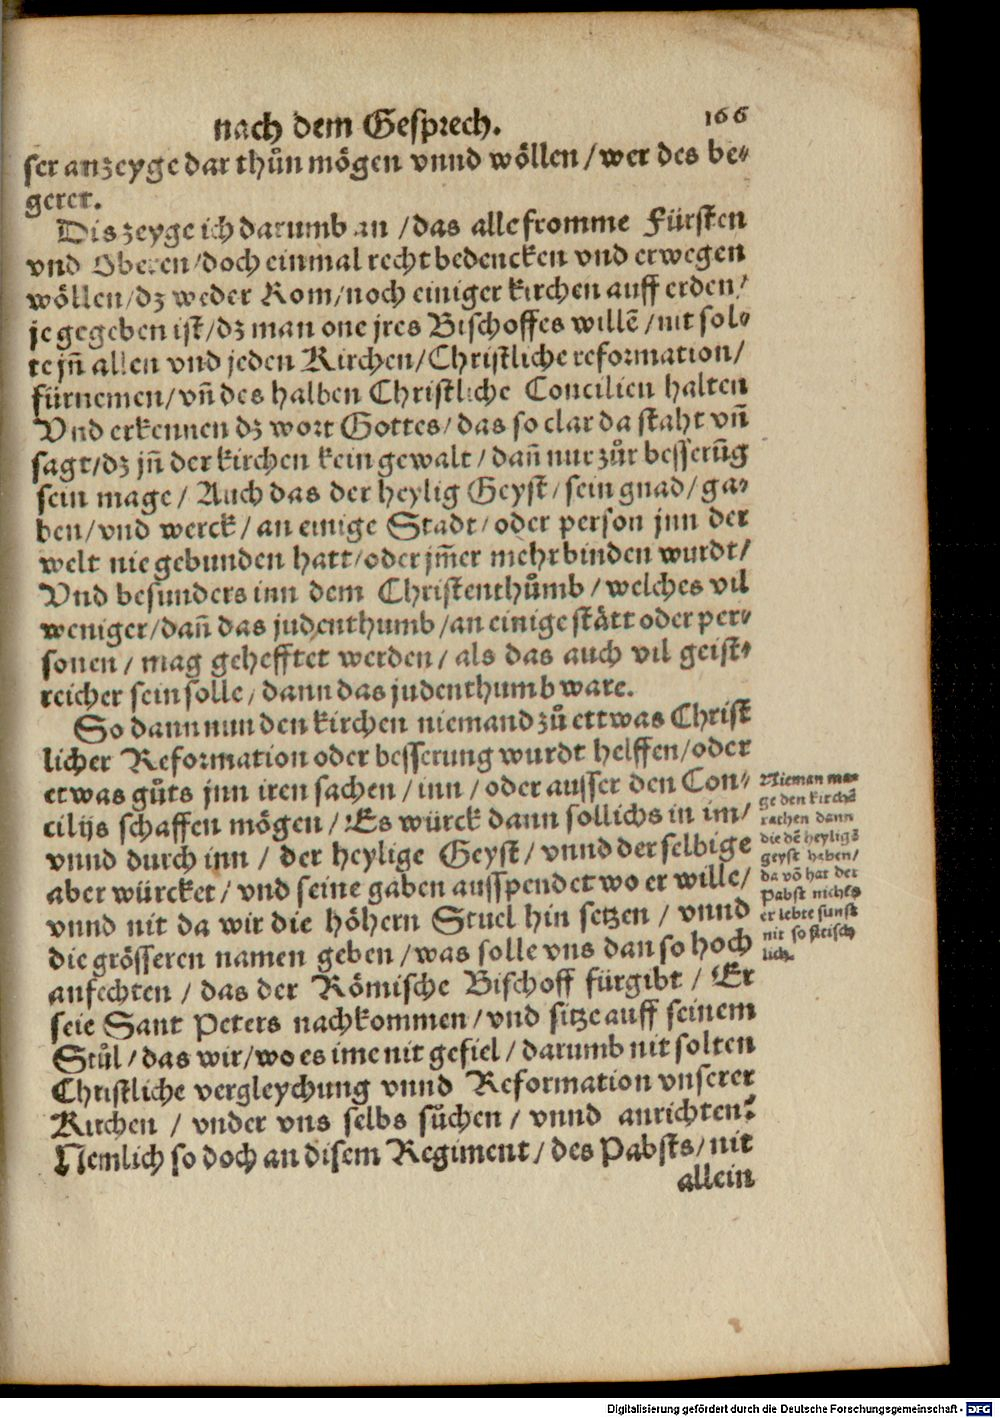 nach dem Gesprech. 166
ser anzeyge dar thůn mögen vnnd wöllen / wer des be-
geret.
Dis zeyge ich darumb an / das alle fromme Fürsten
vnd Oberen / doch einmal recht bedencken vnd erwegen
wöllen / dz weder Rom / noch einiger kirchen auff erden /
je gegeben ist / dz man one jres Bischoffes willē / nit sol-
te jn̄ allen vnd jeden Kirchen / Christliche reformation /
fürnemen / vn̄ des halben Christliche Concilien halten
Vnd erkennen dz wort Gottes / das so clar da staht vn̄
sagt / dz jn̄ der kirchen kein gewalt / dan̄ nur zůr besserūg
sein mage / Auch das der heylig Geyst / sein gnad / ga-
ben / vnd werck / an einige Stadt / oder person jnn der
welt nie gebunden hatt / oder jm̄er mehr binden wurdt /
Vnd besunders inn dem Christenthůmb / welches vil
weniger / dan̄ das judenthumb / an einige stätt oder per-
sonen / mag gehefftet werden / als das auch vil geist-
reicher sein solle / dann das judenthumb ware.
So dann nun den kirchen niemand zů ettwas Christ
licher Reformation oder besserung wurdt helffen / oder
etwas gůts jnn iren sachen / inn / oder ausser den Con-
cilijs schaffen mögen / Es würck dann sollichs in im /
vnnd durch inn / der heylige Geyst / vnnd der selbige
aber würcket / vnd seine gaben ausspendet wo er wille /
vnnd nit da wir die höhern Stuel hin setzen / vnnd
die grösseren namen geben / was solle vns dan so hoch
anfechten / das der Römische Bischoff fürgibt / Er
seie Sant Peters nachkommen / vnd sitze auff seinem
Stůl / das wir / wo es ime nit gefiel / darumb nit solten
Christliche vergleychung vnnd Reformation vnserer
Kirchen / vnder vns selbs sůchen / vnnd anrichten?
Nemlich so doch an disem Regiment / des Pabsts / nit
allein
Nieman ma-
ge den kirchē
rathen dann
die dē heyligē
geyst haben /
da vō hat der
Pabst nichts
er lebte sunst
nit so fleisch
lich.
Digitalisierung gefördert durch die Deutsche Forschungsgemeinschaft - DFG